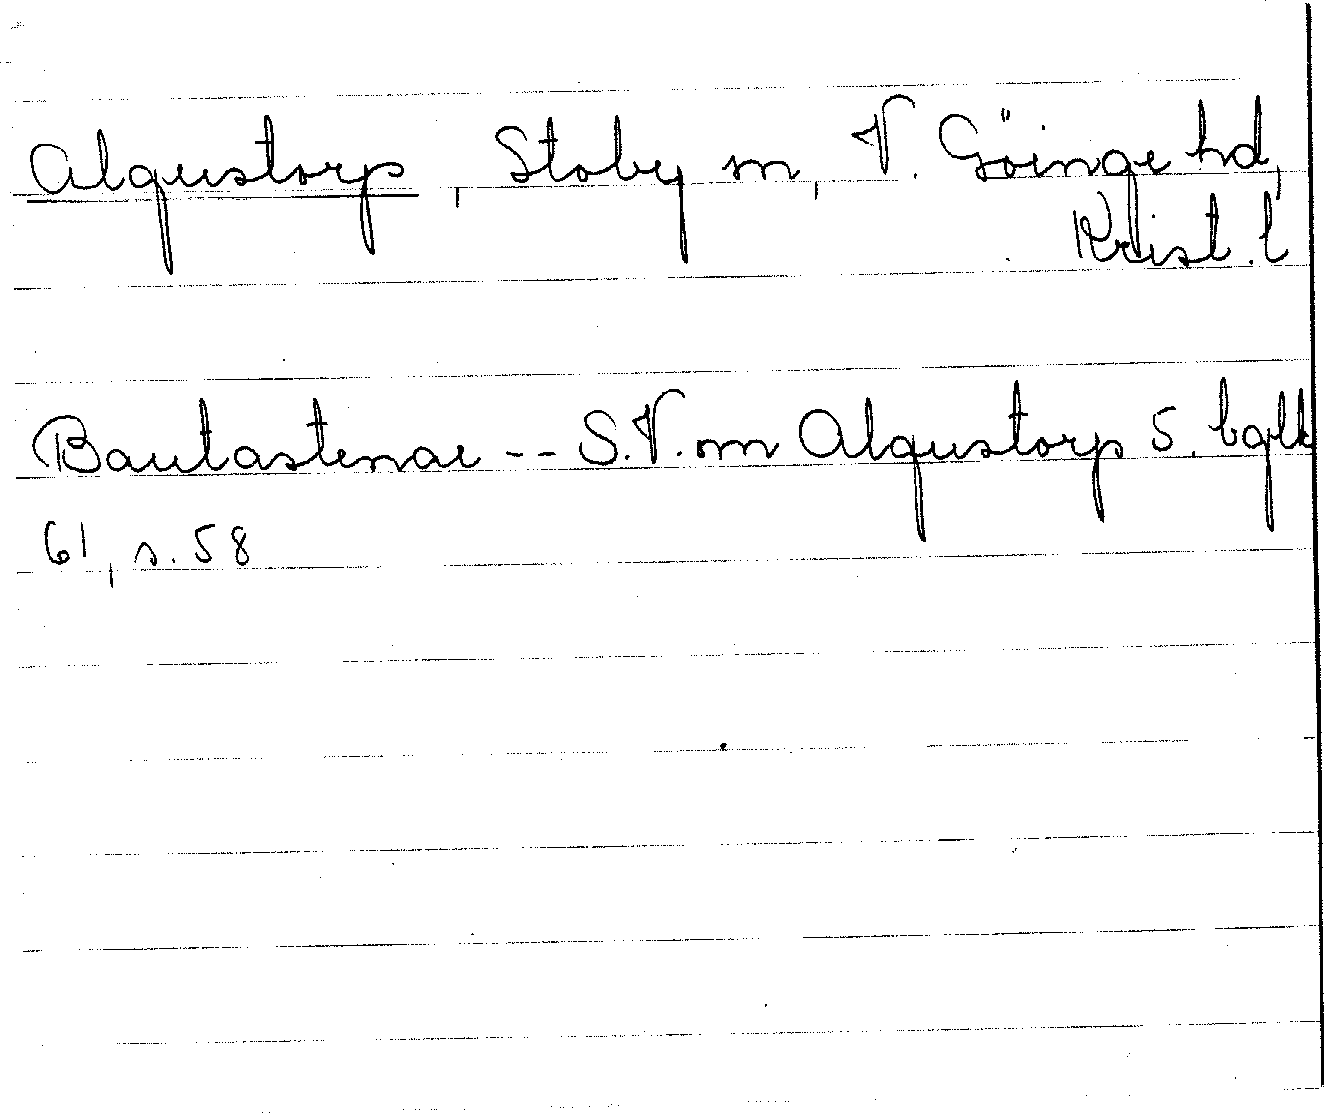 Algustorp, Stoby sn, V. Göinge hd,
Krist. l
Bautastenar -- S.V. om Algustorp 5. bglk
61, s. 58